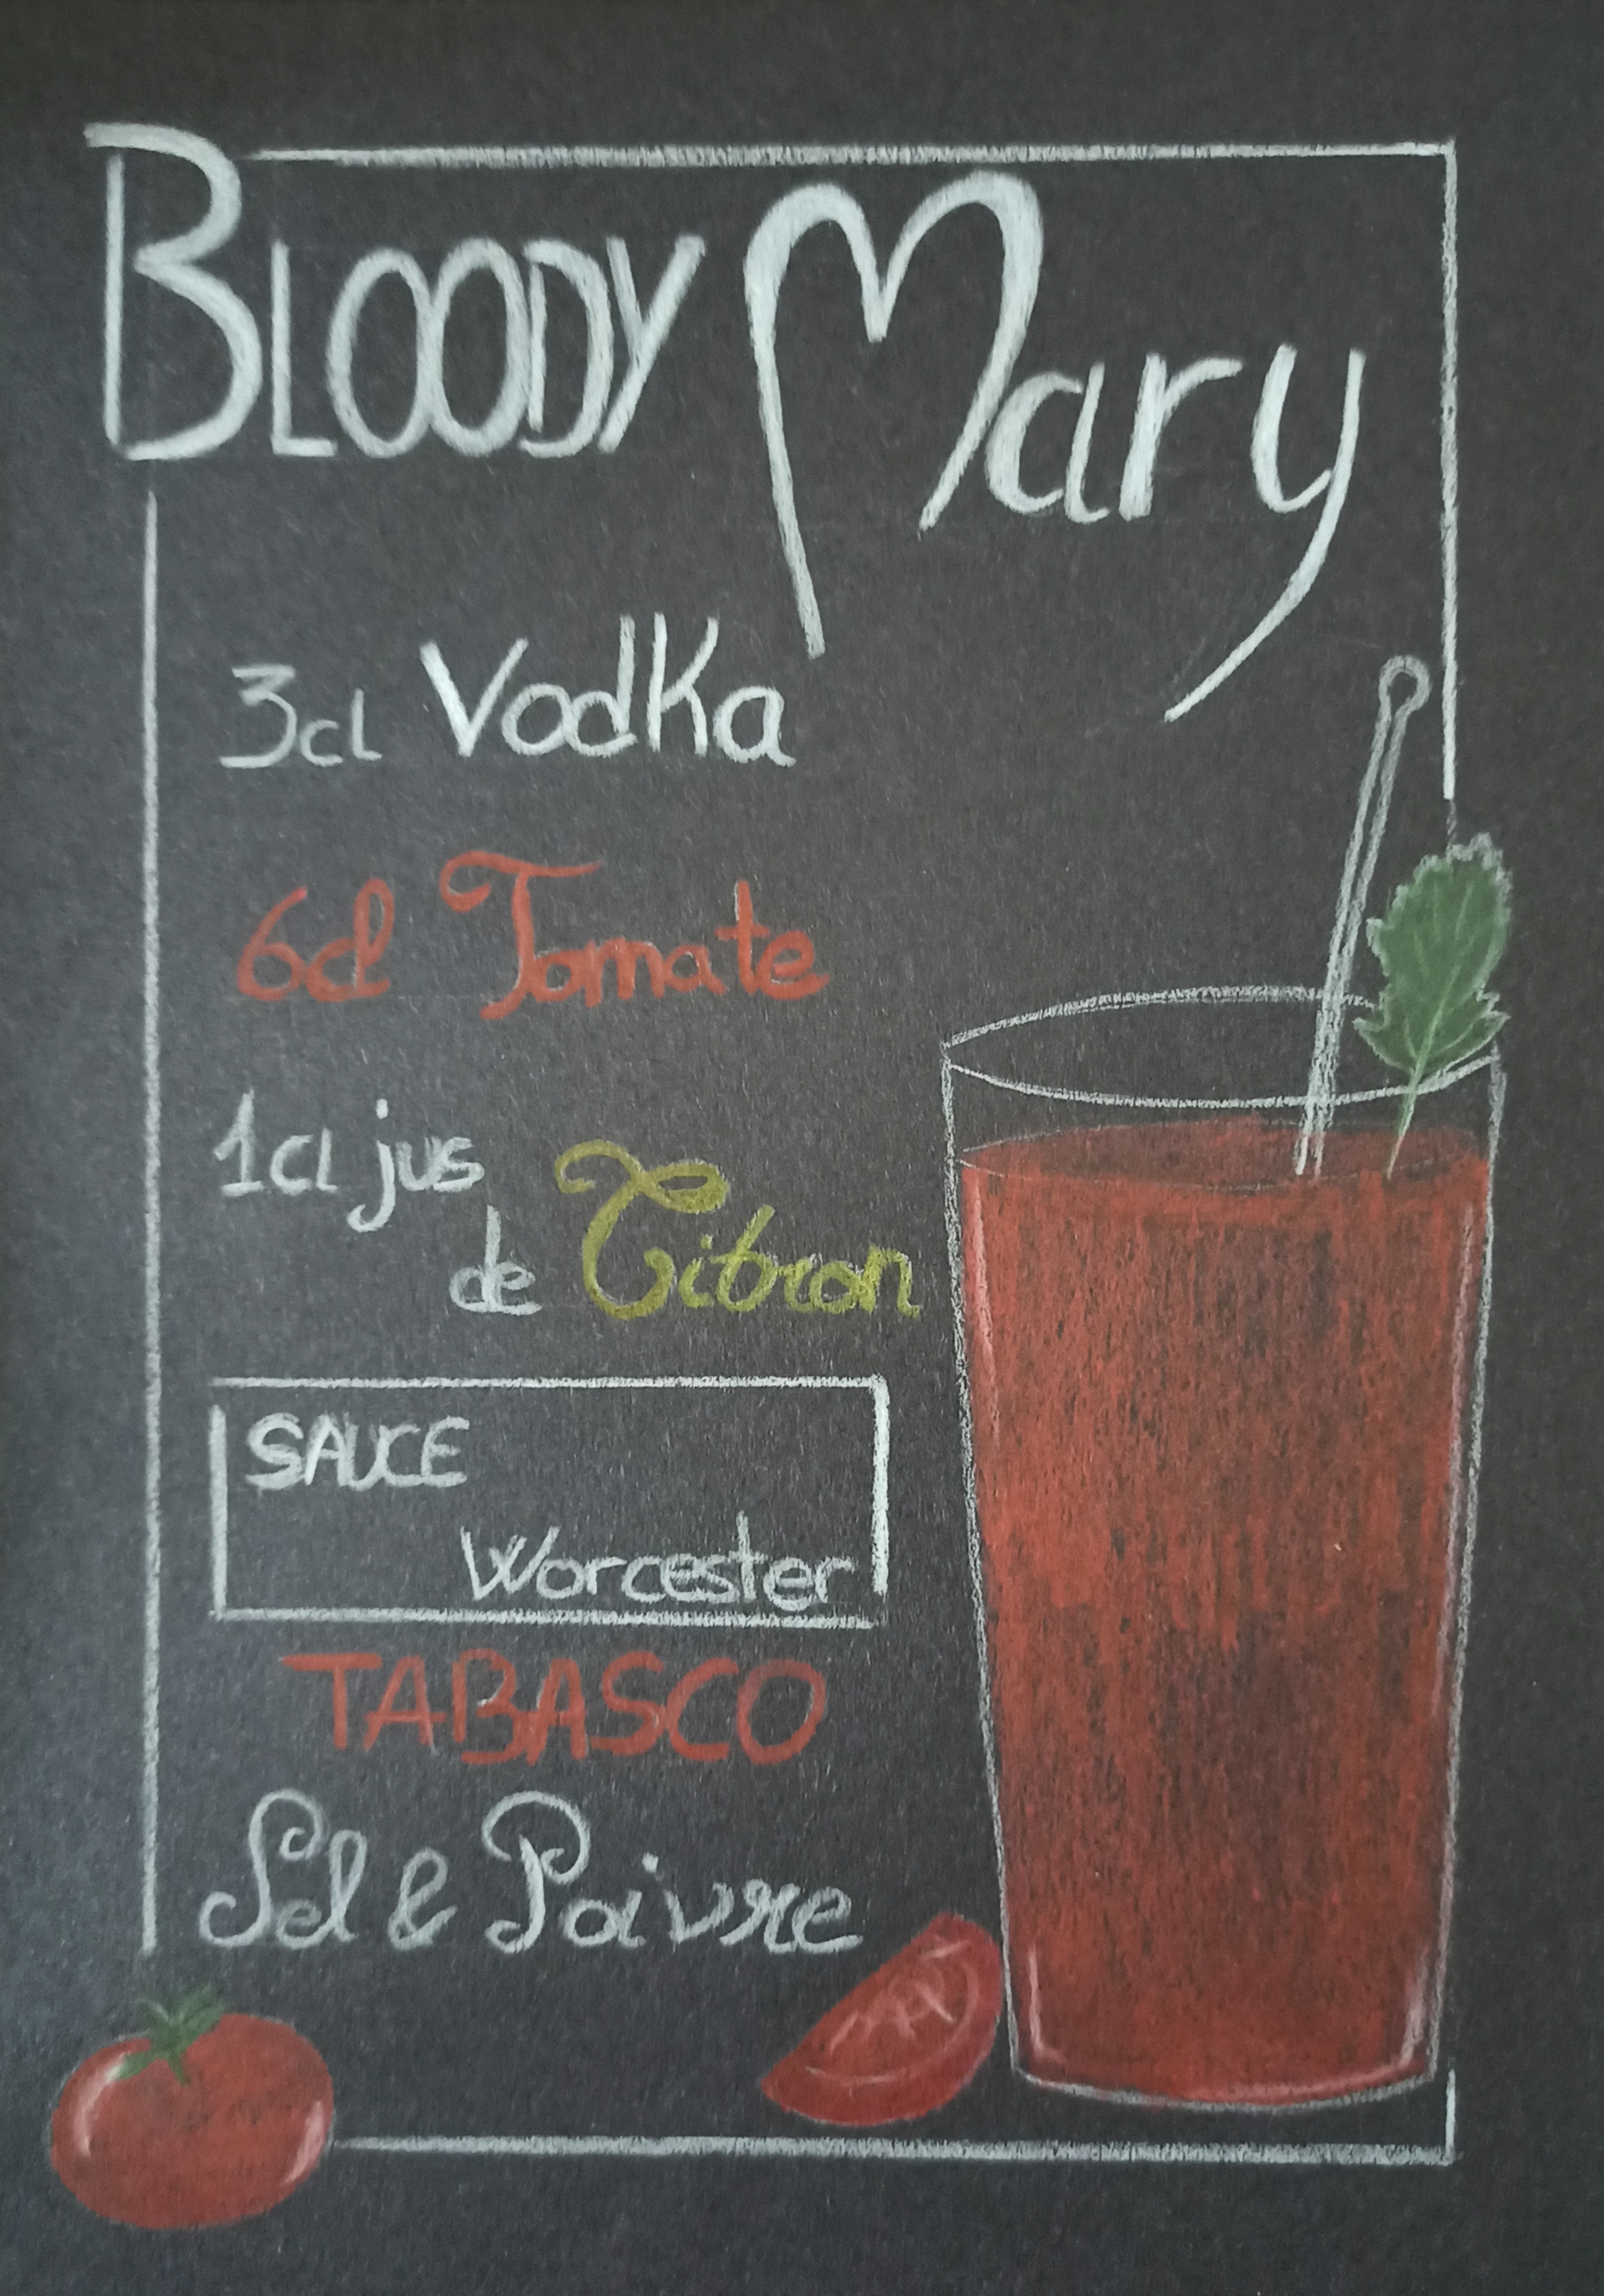 BLOODY Mary
3cl Vodka
6cl Tomate
1cl jus
de Citron
SAUCE
Worcester
TABASCO
Sel & Poivre